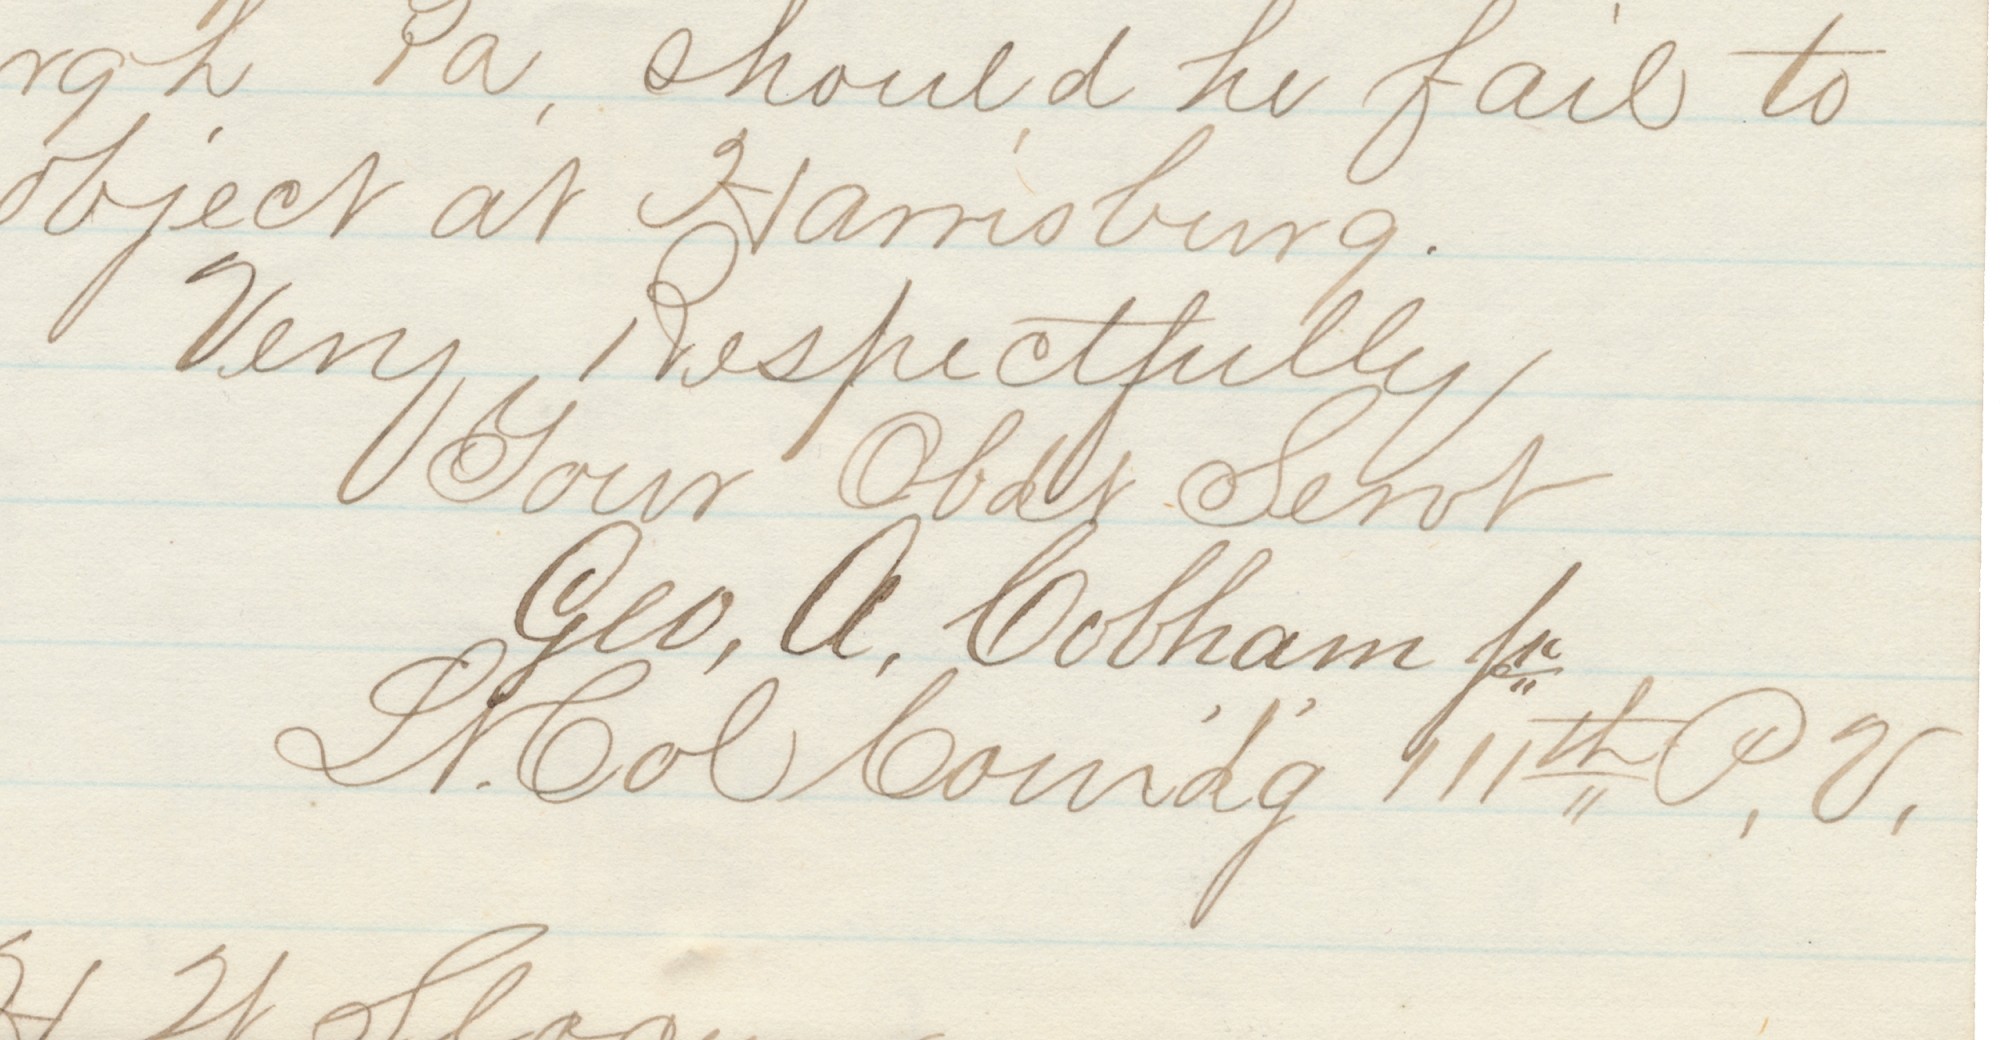 rgh Pa, should he fail to
object at Harrisburg.
Very Respectfully
Your Obdt Servt
Geo, A, Cobham jr
Lt. Col Com'd'g 111th P, V,
H W Slocum